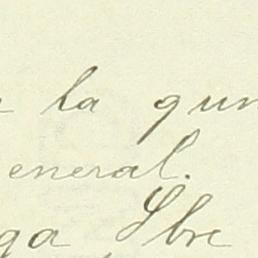 la qun
eneral.
ga Sbre